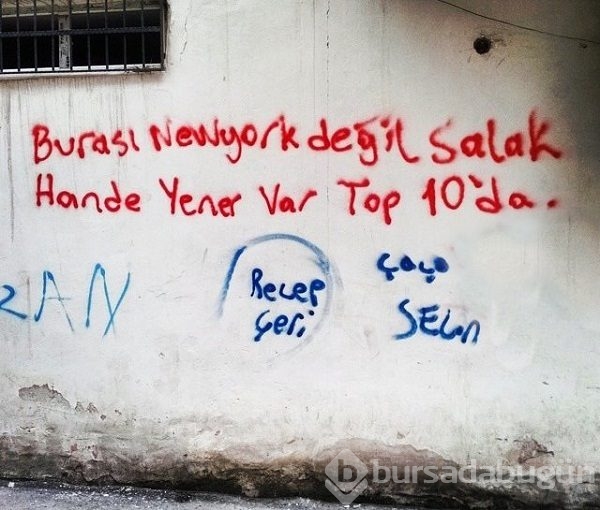 Burası Newyork değil salak
Hande Yener Var Top 10'da.
ZAN
Recep
Çeri
ÇOÇO
SELON
bursadabugün